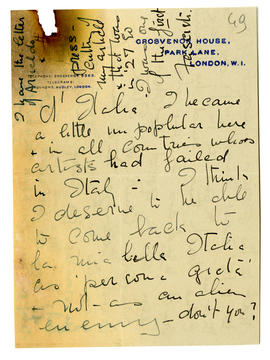 49
GROSVENOR HOUSE,
PARK LANE,
LONDON, W.1.
TELEPHONE: GROSVENOR 6363.
TELEGRAMS:
I was one
of the first
Fascisti.
d'Italia I became
a little unpopular here
& in all countries whose
artists had failed
in Italy – I think
I deserve to be able
to come back to
la mia bella Italia
as 'persona grata'
– not – as an alien
enemy – don't you?